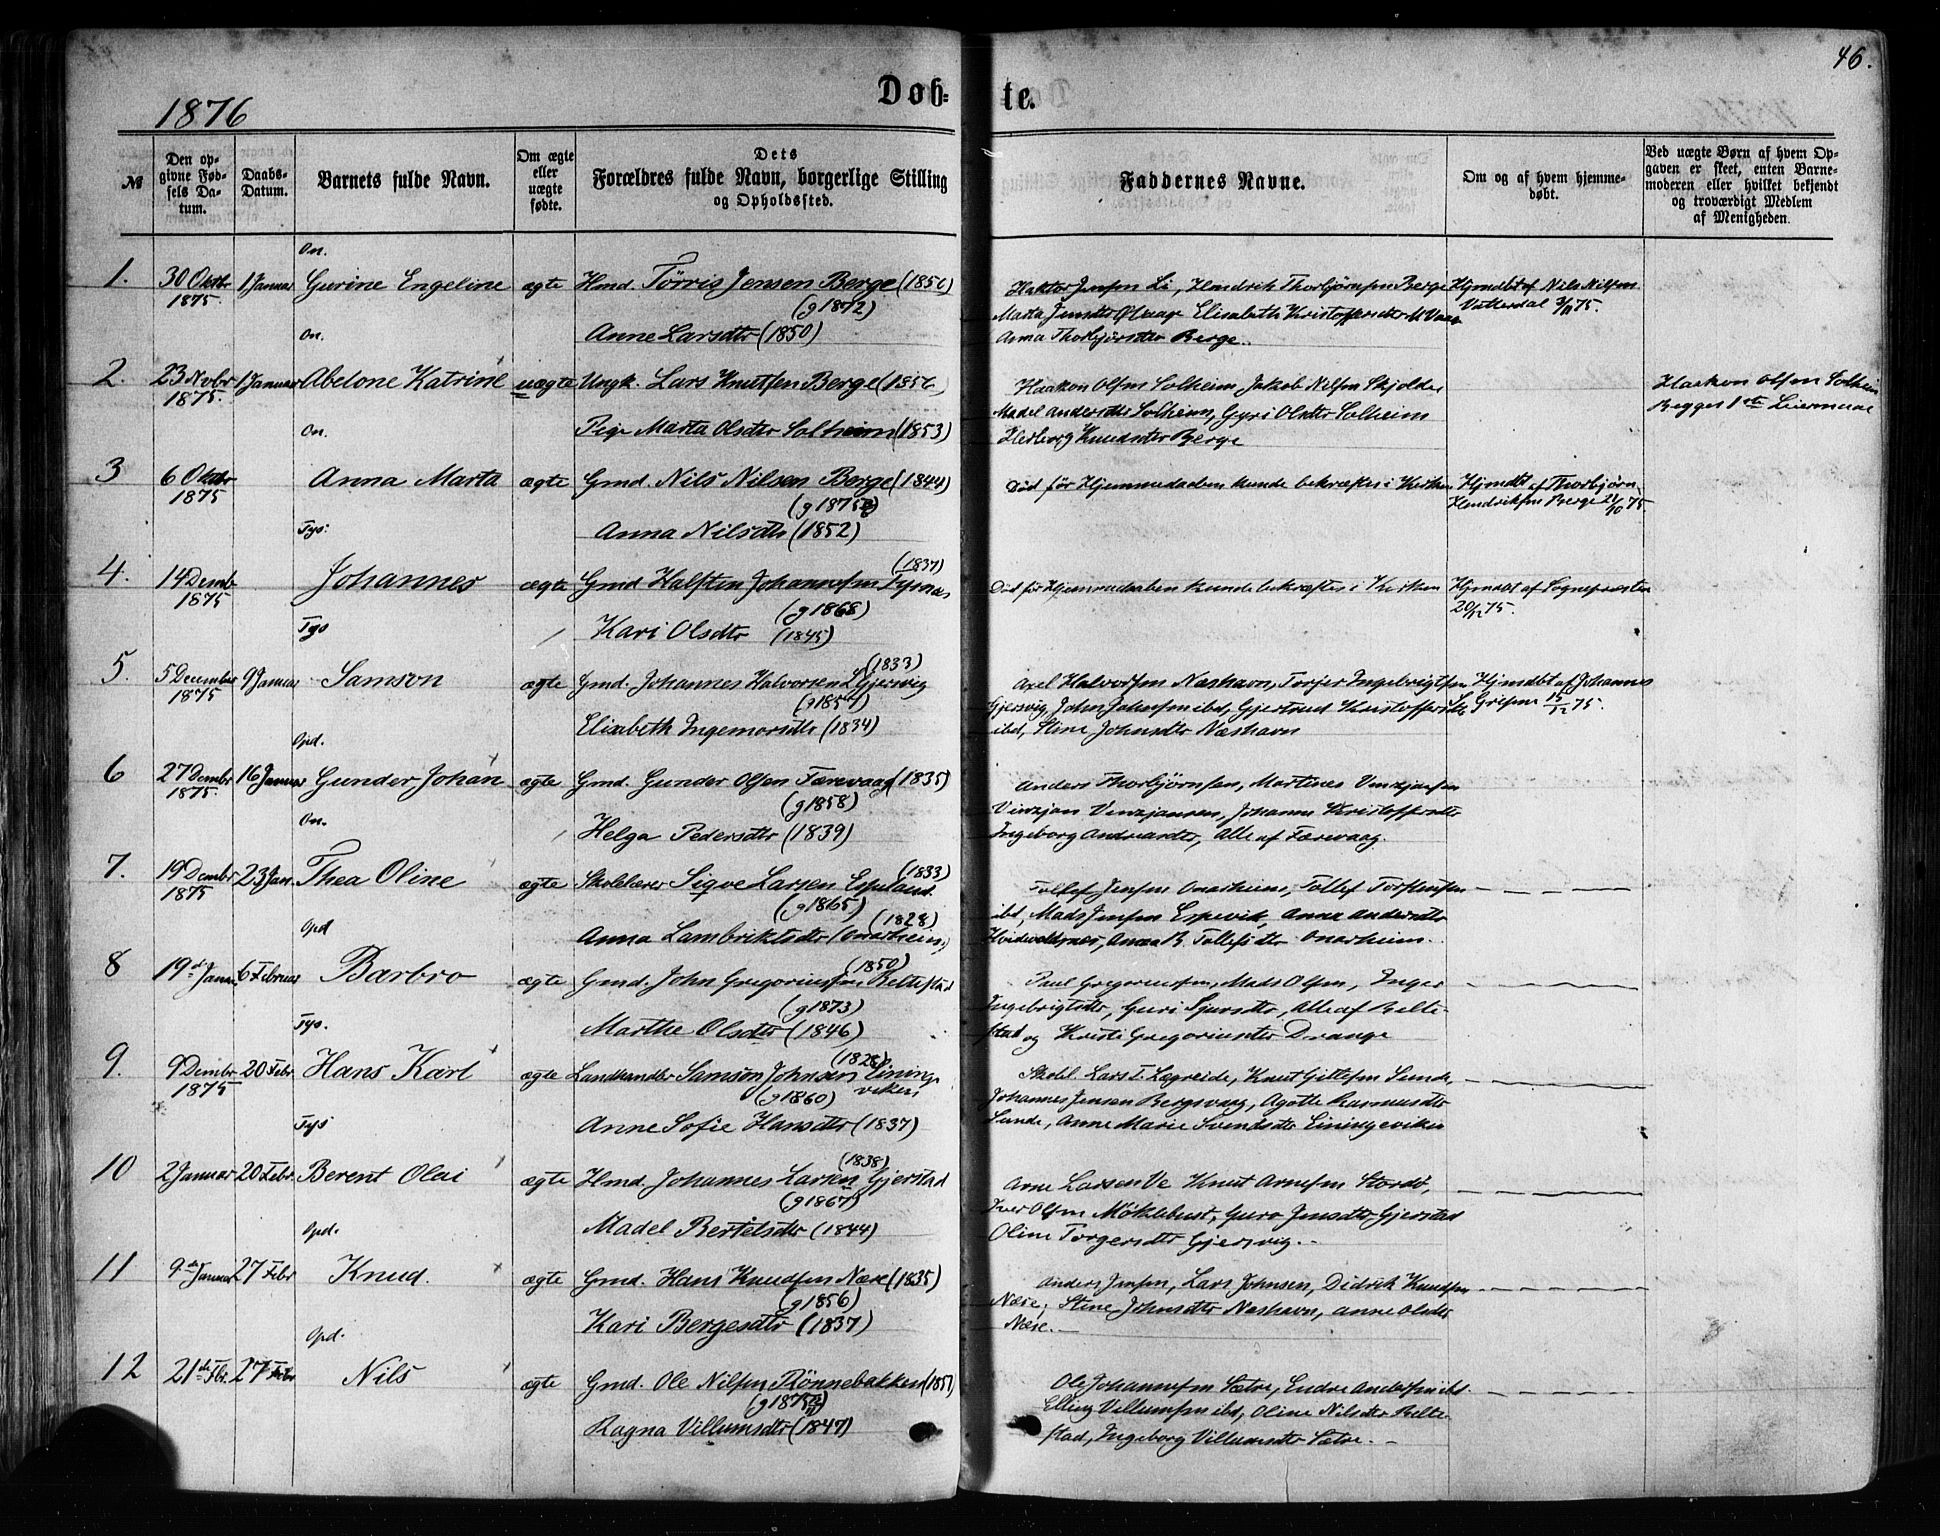 46.
1876
Døb-te.
№
Den op-
givne Fød-
sels Da-
tum.
Daabs-
Datum.
Barnets fulde Navn.
Om ægte
eller
uægte
fødte.
Dets
Forældres fulde Navn, borgerlige Stilling
og Opholdssted.
Faddernes Navne.
Om og af hvem hjemme-
døbt.
Ved uægte Børn af hvem Op-
gaven er skeet, enten Barne-
moderen eller hvilket bekjendt
og troværdigt Medlem
af Menigheden.
On.
1. 30 Oktbr 1 Januar Gurine Engeline ægte Hmd. Tørris Jensen Berge (1850)
1875. (g 1872)
Anne Larsdtr (1850)
Jensen Li, Hendrik Thorbjørnsen Berge
Marta Jensdtr Elisabeth Kristoffersdtr
Anna Thorbjørsdtr Berge.
Hjmdbt af Nils Nilsen
Vatterdal 75.
On.
2. 23 Novbr 1 Januar Abelone Katrine uægte Ungk. Lars Knutsen Berge (1856)
1875.
Pige Marta Olsdtr Solheim (1853)
Haakon Olsen Solheim, Jakob Nilsen Skjolde
Madel Andersdtr Solheim, Gyri Olsdtr Solheim
Herborg Knudsdtr Berge
Haakon Olsen Solheim
Begges 1ste Leiermaal
On.
3 6 Oktbr Anna Marta ægte Gmd. Nils Nilsen Berge (1844)
1875 (g 1875)
Anna Nilsdtr (1852)
Død før Hjemmedaaben kunde bekræftes i Kirken
Hjmdbt af Thorbjørn
Hendriksen Berge 21/10 75
Tys.
4. 14 Decmb Johannes ægte Gmd Halsten Johannesen Tysnæs (1837)
1875 (g 1868)
Kari Olsdtr (1845)
Død før Hjemmedaaben kunde bekræftes i Kirken
Hjmdbt af Sognepresten
20/12 75.
Tys
5. 5 December 9 Januar Samson ægte Gmd. Johannes Halvorsen Gjersvig (1833)
1875 (g 1857)
Elisabeth Ingemorsdtr (1834)
Axel Halvorsen Næshavn, Torjer Ingebrigtsen
Gjersvig, John Johnsen ibd, Gjertrud Kristoffersdtr
ibd, Stine Johnsdtr Næshavn
Hjmdbt af Johannes
75.
Opd.
6 27 Decmbr 16 Januar Gunder Johan ægte Gmd. Gunder Olsen Færevaag (1835)
1875. (g 1858)
Helga Pedersdtr (1839)
Anders Thorbjørnsen, Martines Vinzjansen
Vinzjans Vinzjansen, Johanne Kristoffersdtr
Ingeborg Andreasdtr, Alle af Færevaag.
On.
7. 19 Decmbr 23 Jan. Thea Oline ægte Skolelærer Sigve Larsen Espeland. (1833)
1875 (g 1865)
Anna Lambriktsdtr (Onarheim) (1828)
Tollef Jensen Onarheim, Tollef Torstensen
ibd, Mads Jensen Espevik, Anna Andersdtr
Anna B. Tollefsdtr Onarheim.
Opd
8 19de Januar 6 Februar Barbro ægte Gmd. John Gregoriusen Beltestad (1850)
(g 1873)
Marthe Olsdtr (1846)
Paul Gregoriussen, Mads Olsen, Inger
Ingebrigtsdtr, Guri Sjursdtr, Alle af Belte-
stad og Kristi Gregoriusdtr Drange
Tys.
9. 9 Decmbr 20 Febr. Hans Karl ægte Landhandler Samson Johnsen Einings- (1828)
1875 (g 1860) viken
Anne Sofie Hansdtr (1837)
Skolel. Lars T. Lægreide, Knut Gittlesen Sunde,
Johannes Jensen Bergsvaag, Agotte Rasmusdtr
Sunde, Anne Marie Svendsdtr Einingeviken
Tys
10 2 Januar 20 Febr. Berent Olai ægte Hmd. Johannes Larsen Gjerstad (1838)
(g 1867)
Madel Bertelsdtr (1844)
Arne Larsen Ve Knut Arnesen Stordø,
Iver Olsen Møklebust, Guro Jensdtr Gjerstad
Oline Torgersdtr Gjersvig.
Opd.
11 9de Januar 27 Febr Knud. ægte Gmd. Hans Knudsen Næse (1835)
(g 1856)
Kari Bergesdtr (1837)
Anders Jensen, Lars Johnsen, Didrik Knudsen
Næse; Stine Johnsdtr Næshavn, Anne Olsdtr
Næse.
Opd.
12 21de Fbr. 27 Febr Nils ægte Gmd. Ole Nilsen Rønnebakken (1851)
(g 1875)
Ragna Villumsdtr (1847)
Ole Johannesen Sætre, Endre Andersen ibd.
Elling Villumsen ibd, Oline Nilsdtr Belte-
stad, Ingeborg Villumsdtr Sætre.